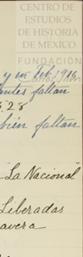 CENTRO DE
ESTUDIOS
DE HISTORIA
DE MEXICO
FUNDACIÓN
y en Feb. 1916.
antes faltan
528
bien faltan
La Nacional
Liberadas
avera